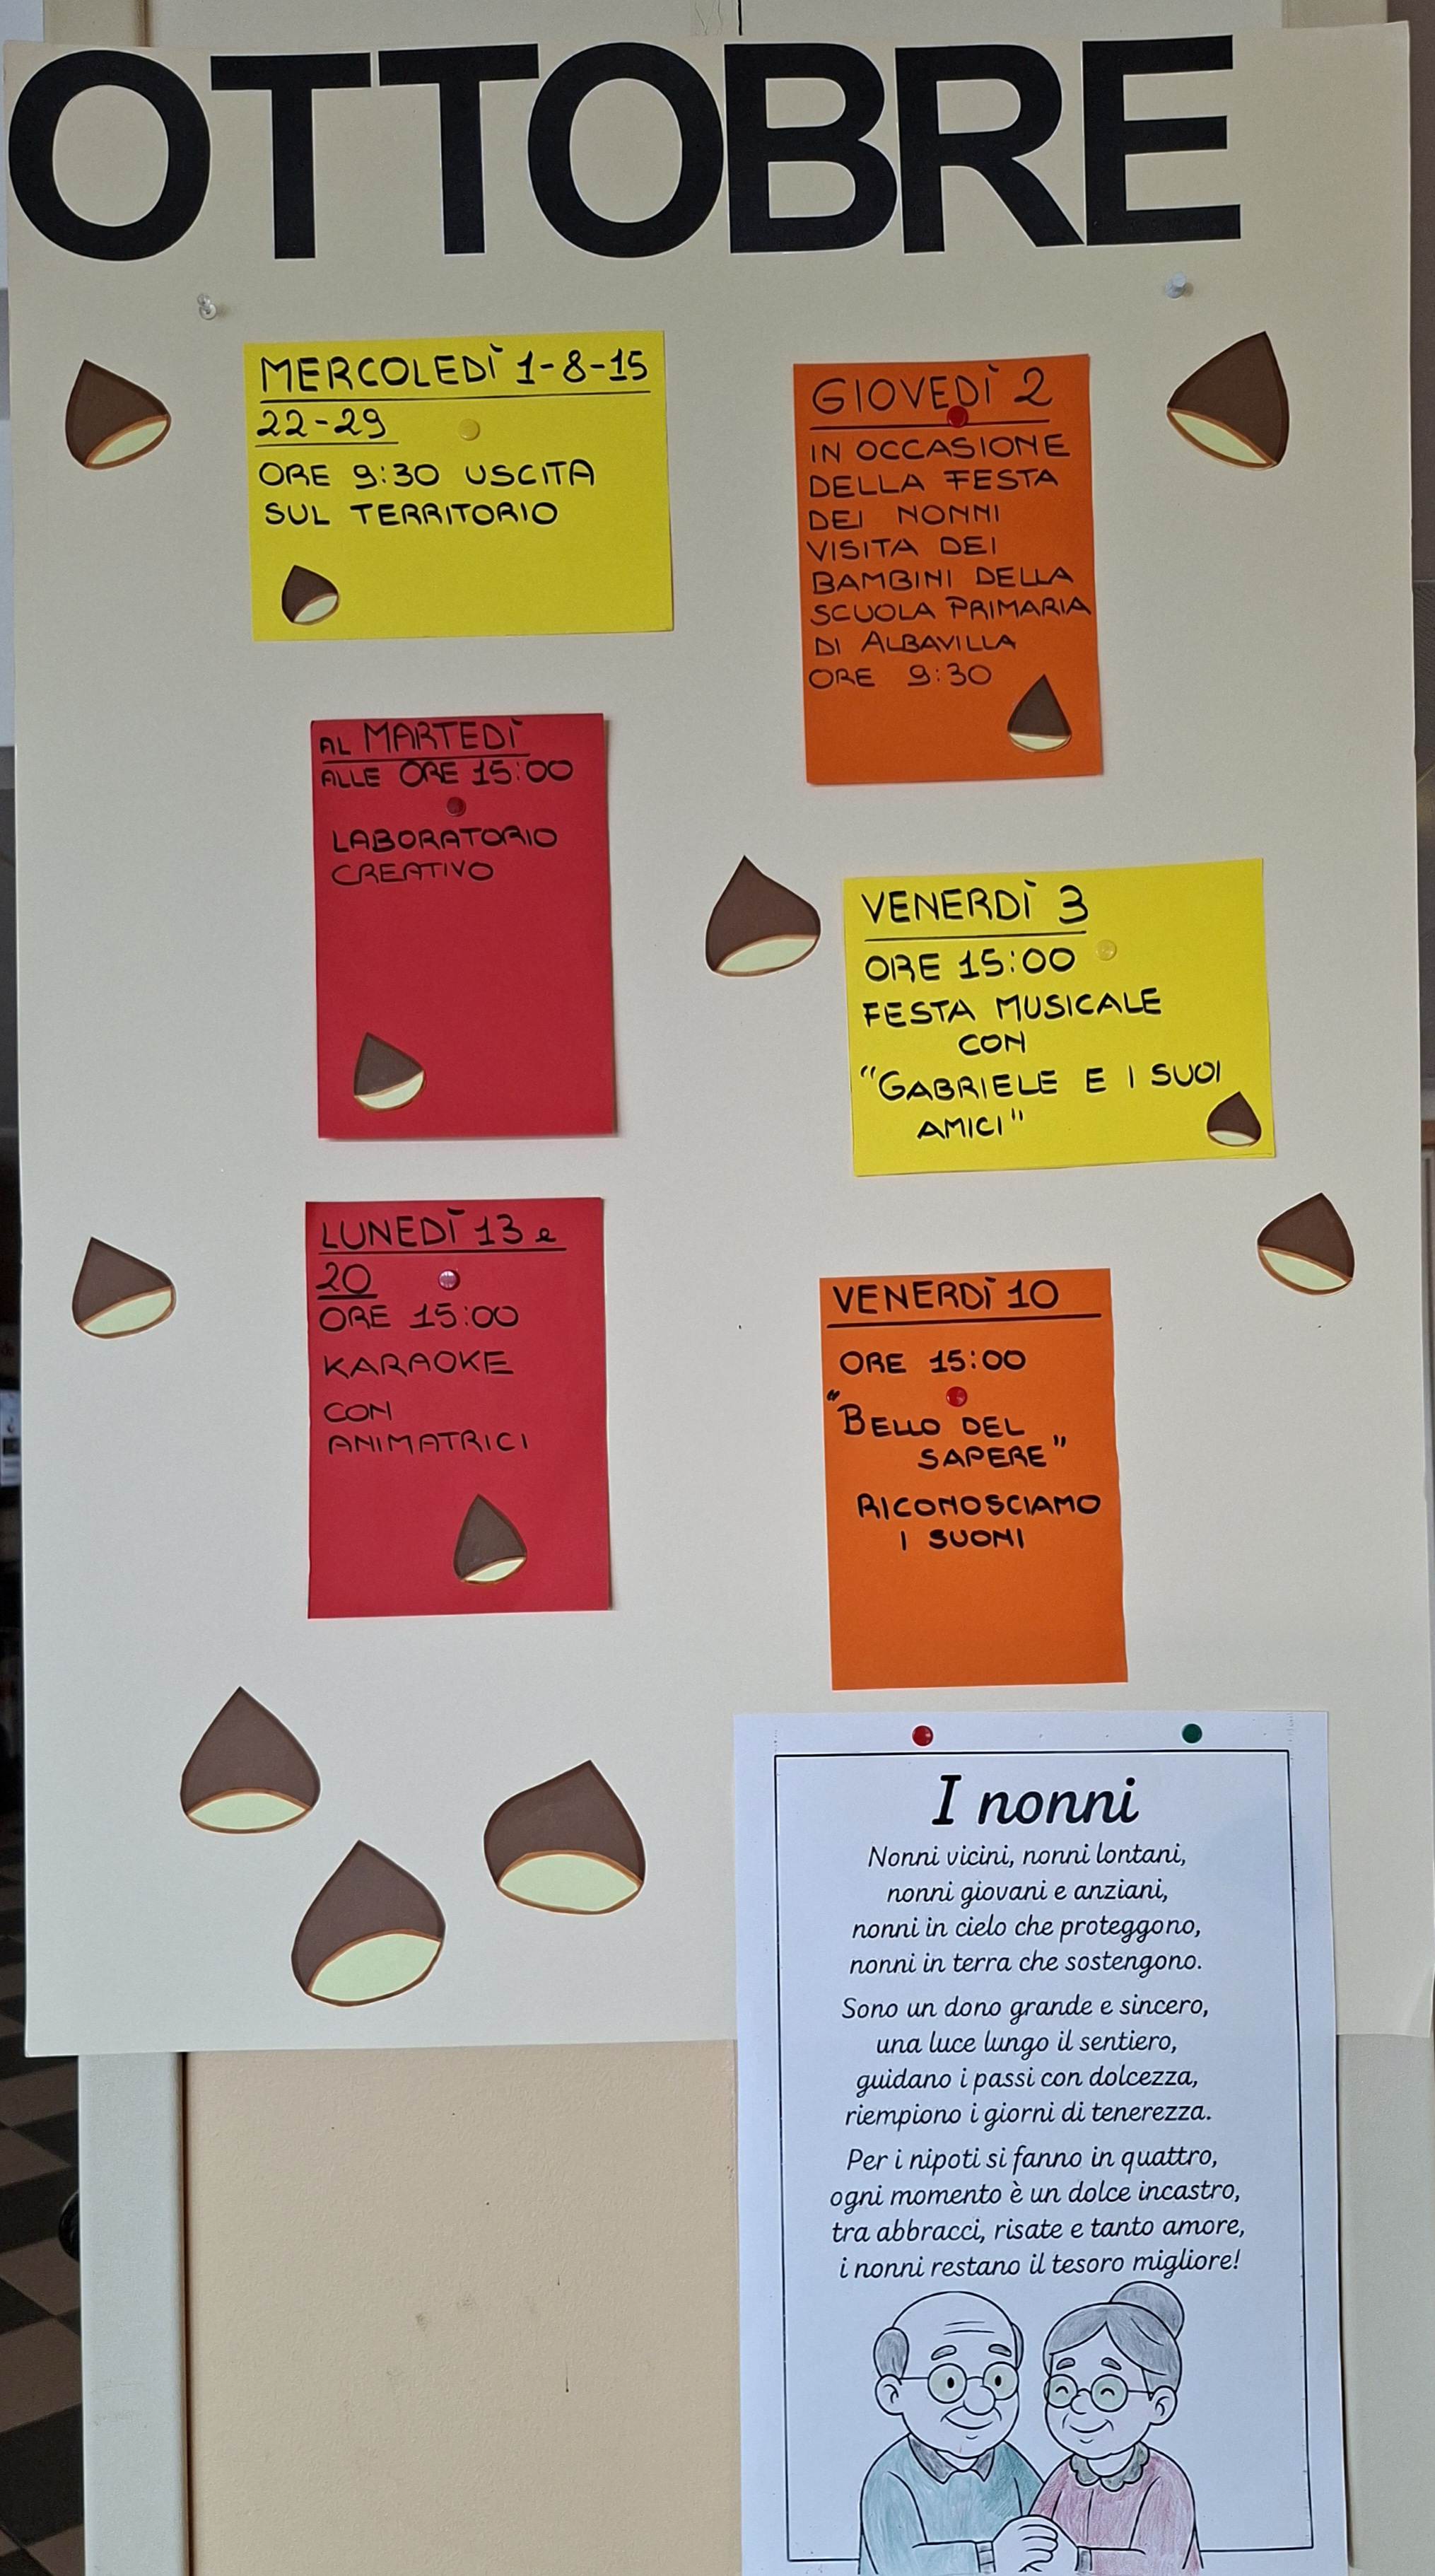 OTTOBRE
MERCOLEDÌ 1-8-15
22-29
ORE 9:30 USCITA
SUL TERRITORIO
GIOVEDÌ 2
IN OCCASIONE
DELLA FESTA
DEI NONNI
VISITA DEI
BAMBINI DELLA
SCUOLA PRIMARIA
DI ALBAVILLA
ORE 9:30
AL MARTEDÌ
ALLE ORE 15:00
LABORATORIO
CREATIVO
VENERDÌ 3
ORE 15:00
FESTA MUSICALE
CON
"GABRIELE E I SUOI
AMICI"
LUNEDÌ 13 e
20
ORE 15:00
KARAOKE
CON
ANIMATRICI
VENERDÌ 10
ORE 15:00
"BELLO DEL
SAPERE"
RICONOSCIAMO
I SUONI
I nonni
Nonni vicini, nonni lontani,
nonni giovani e anziani,
nonni in cielo che proteggono,
nonni in terra che sostengono.
Sono un dono grande e sincero,
una luce lungo il sentiero,
guidano i passi con dolcezza,
riempiono i giorni di tenerezza.
Per i nipoti si fanno in quattro,
ogni momento è un dolce incastro,
tra abbracci, risate e tanto amore,
i nonni restano il tesoro migliore!